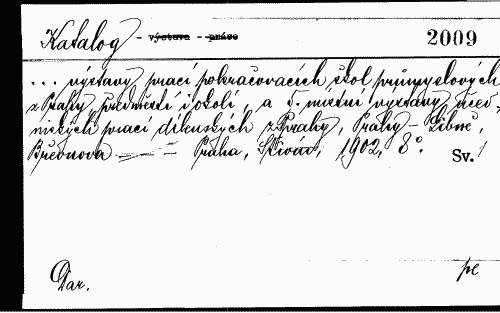 Katalog - výstava - práce 2009
... výstavy prací pokračovacích škol průmyslových
z Prahy, předměstí i okolí, a 5. místní výstavy učed-
nických prací dílenských z Prahy, Prahy - Libně,
Břevnova — — = Praha, Stivín, 1902, 8°. Sv. 1
Dar. pe